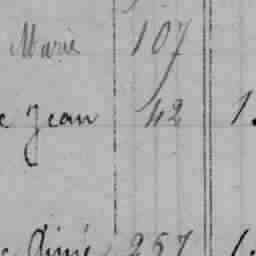 Marie 107
e Jean 42 1.
Aimé 257